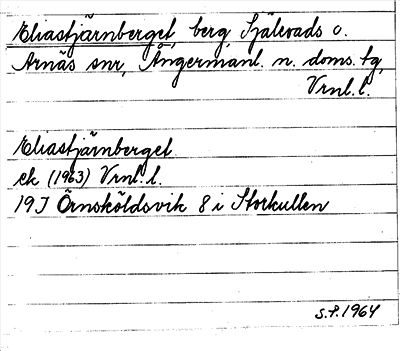 Eliastjärnberget, berg Själevads o.
Arnäs snr, Ångermanl. n. doms. tg,
Vrnl. l.
Eliastjärnberget
ek (1963) Vrnl. l.
19J Örnsköldsvik 8 i Storkullen
S.f. 1964